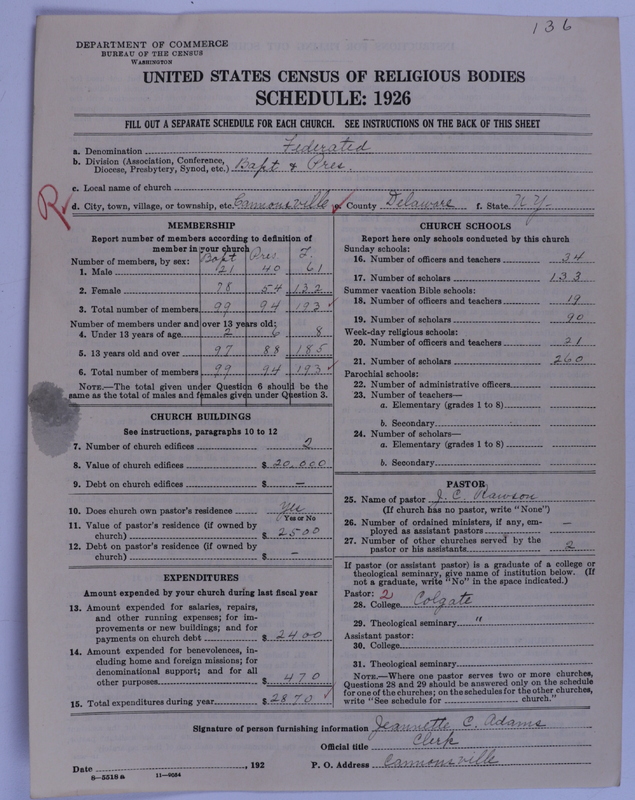 136
DEPARTMENT OF COMMERCE
BUREAU OF THE CENSUS
WASHINGTON
UNITED STATES CENSUS OF RELIGIOUS BODIES
SCHEDULE: 1926
FILL OUT A SEPARATE SCHEDULE FOR EACH CHURCH. SEE INSTRUCTIONS ON THE BACK OF THIS SHEET
a. Denomination Federated
b. Division (Association, Conference, Diocese, Presbytery, Synod, etc.) Bapt & Pres.
c. Local name of church
R
d. City, town, village, or township, etc. Cannonsville e. County Delaware f. State N.Y.
MEMBERSHIP
Report number of members according to definition of
member in your church
Bapt Pres F.
Number of members, by sex:
1. Male 21 40 61
2. Female 78 54 132
3. Total number of members 99 94 193
Number of members under and over 13 years old:
4. Under 13 years of age 2 6 8
5. 13 years old and over 97 88 185
6. Total number of members 99 94 193
NOTE.—The total given under Question 6 should be the
same as the total of males and females given under Question 3.
CHURCH BUILDINGS
See instructions, paragraphs 10 to 12
7. Number of church edifices 2
8. Value of church edifices $ 20,000
9. Debt on church edifices $ —
10. Does church own pastor's residence Yes
Yes or No
11. Value of pastor's residence (if owned by
church) $ 2500
12. Debt on pastor's residence (if owned by
church) $ —
EXPENDITURES
Amount expended by your church during last fiscal year
13. Amount expended for salaries, repairs,
and other running expenses; for im-
provements or new buildings; and for
payments on church debt $ 2400
14. Amount expended for benevolences, in-
cluding home and foreign missions; for
denominational support; and for all
other purposes $ 470
15. Total expenditures during year $ 2870
CHURCH SCHOOLS
Report here only schools conducted by this church
Sunday schools:
16. Number of officers and teachers 34
17. Number of scholars 133
Summer vacation Bible schools:
18. Number of officers and teachers 19
19. Number of scholars 90
Week-day religious schools:
20. Number of officers and teachers 21
21. Number of scholars 260
Parochial schools:
22. Number of administrative officers
23. Number of teachers—
a. Elementary (grades 1 to 8)
b. Secondary
24. Number of scholars—
a. Elementary (grades 1 to 8)
b. Secondary
PASTOR
25. Name of pastor J. C. Rawson
(If church has no pastor, write "None")
26. Number of ordained ministers, if any, em-
ployed as assistant pastors —
27. Number of other churches served by the
pastor or his assistants 2
If pastor (or assistant pastor) is a graduate of a college or
theological seminary, give name of institution below. (If
not a graduate, write "No" in the space indicated.)
Pastor: 2
28. College Colgate
29. Theological seminary "
Assistant pastor:
30. College
31. Theological seminary
NOTE.—Where one pastor serves two or more churches,
Questions 28 and 29 should be answered only on the schedule
for one of the churches; on the schedules for the other churches,
write "See schedule for church."
Signature of person furnishing information Jeannette C. Adams
Official title Clerk
Date , 192 P. O. Address Cannonsville
8—5518 a 11—9054